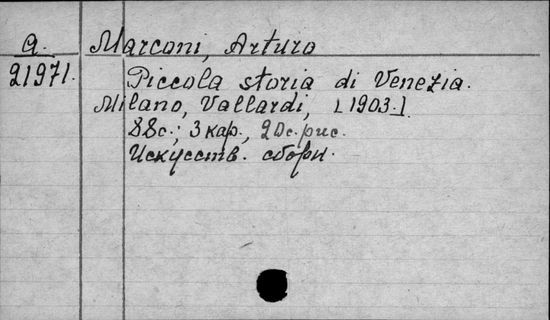 a. Marconi, Arturo
21971. Piccola storia di Venezia.
Milano, Vallardi, [1903.]
88с.; 3 кар., 20с. рис.
Искусств. сборн.